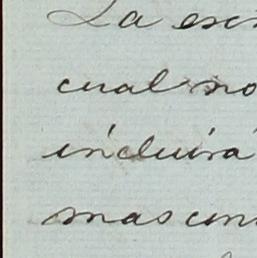 La esc
cual no
incluirá
mas con